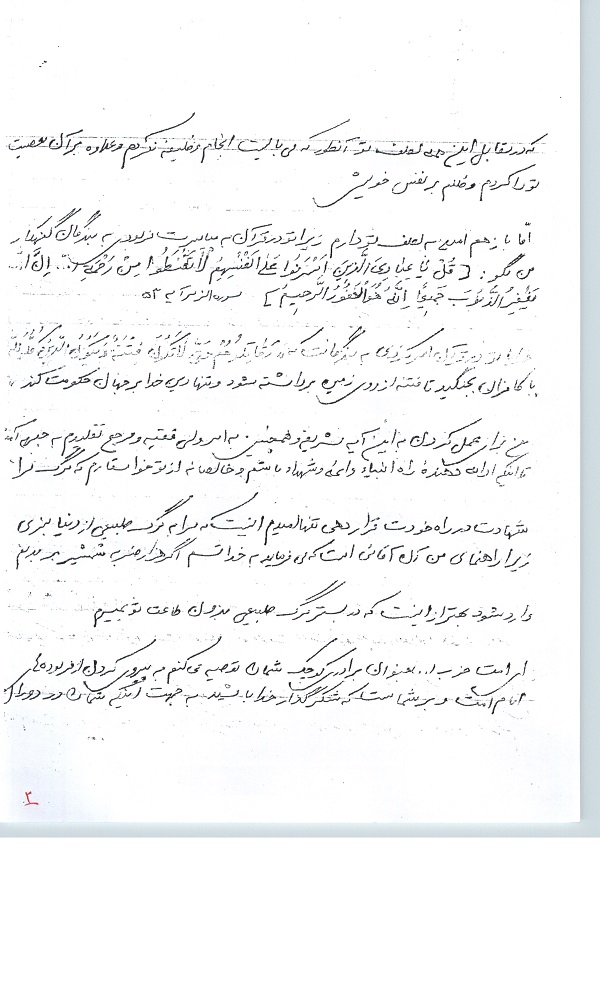 که در مقابل این همه لطف تو آنطور که می بایست انجام وظیفه نکردم و علاوه بر آن معصیت
تو را کردم و ظلم بر نفس خویش
امّا باز هم امید به لطف تو دارم زیرا تو در قرآن به پیامبرت فرمودی به بندگان گنهکار
من بگو : [ قُلْ یٰا عِبادِیَ الَّذینَ اَسْرَفُوا عَلیٰ اَنْفُسِهِمْ لٰا تَقْنَطُوا مِنْ رَحْمَةِ ا... اِنَّ ا...
یَغْفِرُ الذُّنُوبَ جَمیعًا اِنَّهُ هُوَ الْغَفُورُ الرَّحیمُ ] سوره الزمر آیه ۵۳
خدایا تو در قرآن امر کردی به بندگانت که
با کافران بجنگید تا فتنه از روی زمین برداشته شود و تنها دین خدا بر جهان حکومت کند
من برای عمل کردن به این آیه شریفه و همچنین به امر ولی فقیه و مرجع تقلیدم به جبهه آمدم
تا اینکه ادامه دهندهٔ راه انبیاء و ائمه و شهداء باشم و خالصانه از تو خواستارم که مرگ مرا
شهادت در راه خودت قرار دهی تنها امیدم اینست که مرا به مرگ طبیعی از دنیا نبری
زیرا راهنمای من آن آقائی است که می فرماید به خدا قسم اگر هزار ضربه شمشیر بر بدنم
وارد شود بهتر از اینست که در بستر مرگ طبیعی بدون طاعت تو بمیرم
ای امت حزب ا... بعنوان برادری کوچک شما را توصیه می کنم به پیروی کردن از فرموده های
امام امت و بر شماست که شکرگذار خدا باشید به جهت اینکه شما را در دوران
۲